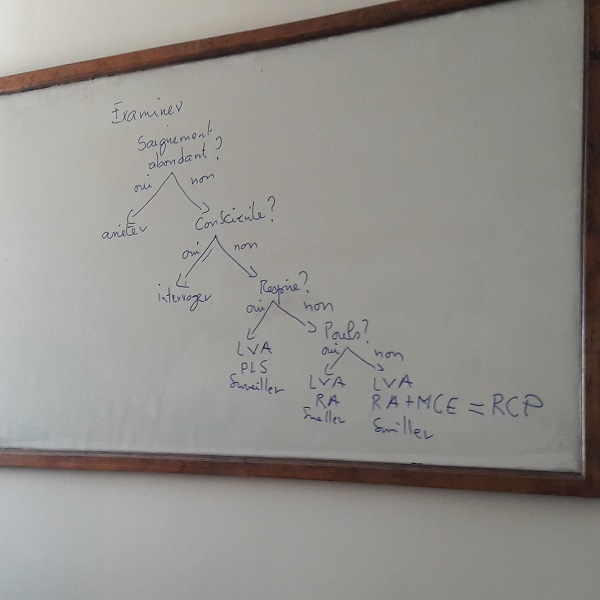 Examiner
Saignement
abondant ?
oui non
arrêter
Consciente ?
oui non
interroger
Respire ?
oui non
LVA
PLS
Surveiller
Pouls ?
oui non
LVA LVA
RA RA + MCE = RCP